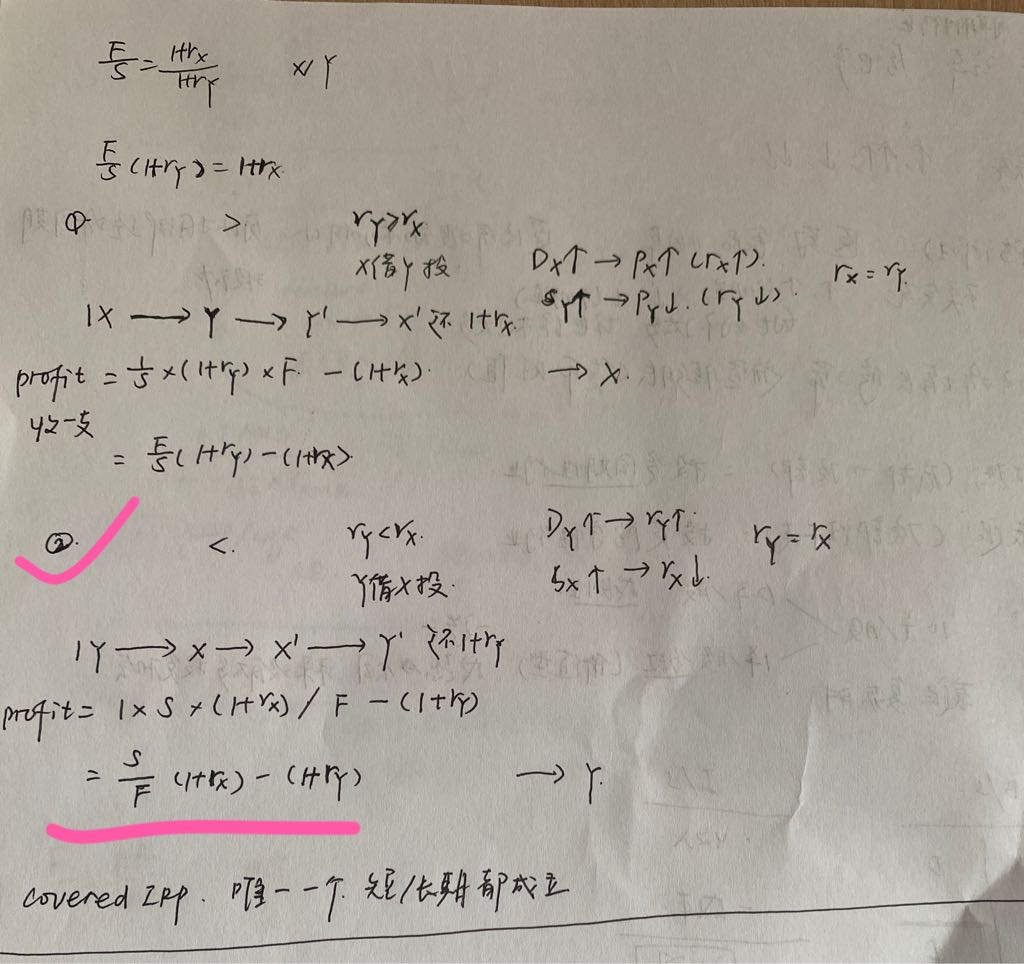 F/S = 1+rx/1+rY X/Y
F/S (1+rY) = 1+rx
① > rY>rx
X借Y投 Dx↑ → Px↑ (rx↑). rx = rY
SY↑ → PY↓. (rY↓).
1X → Y → Y' → X' 还 1+rx
profit = 1/S ×(1+rY)×F - (1+rx). → X.
= F/S (1+rY) - (1+rx)
②. <. rY<rx. DY↑ → rY↑. rY = rx
Y借X投. Sx↑ → rx↓.
1Y → X → X' → Y' 还1+rY
profit = 1 × S × (1+rx) / F - (1+rY)
= S/F (1+rx) - (1+rY) → Y.
covered IRP. 唯一一个 短/长期都成立